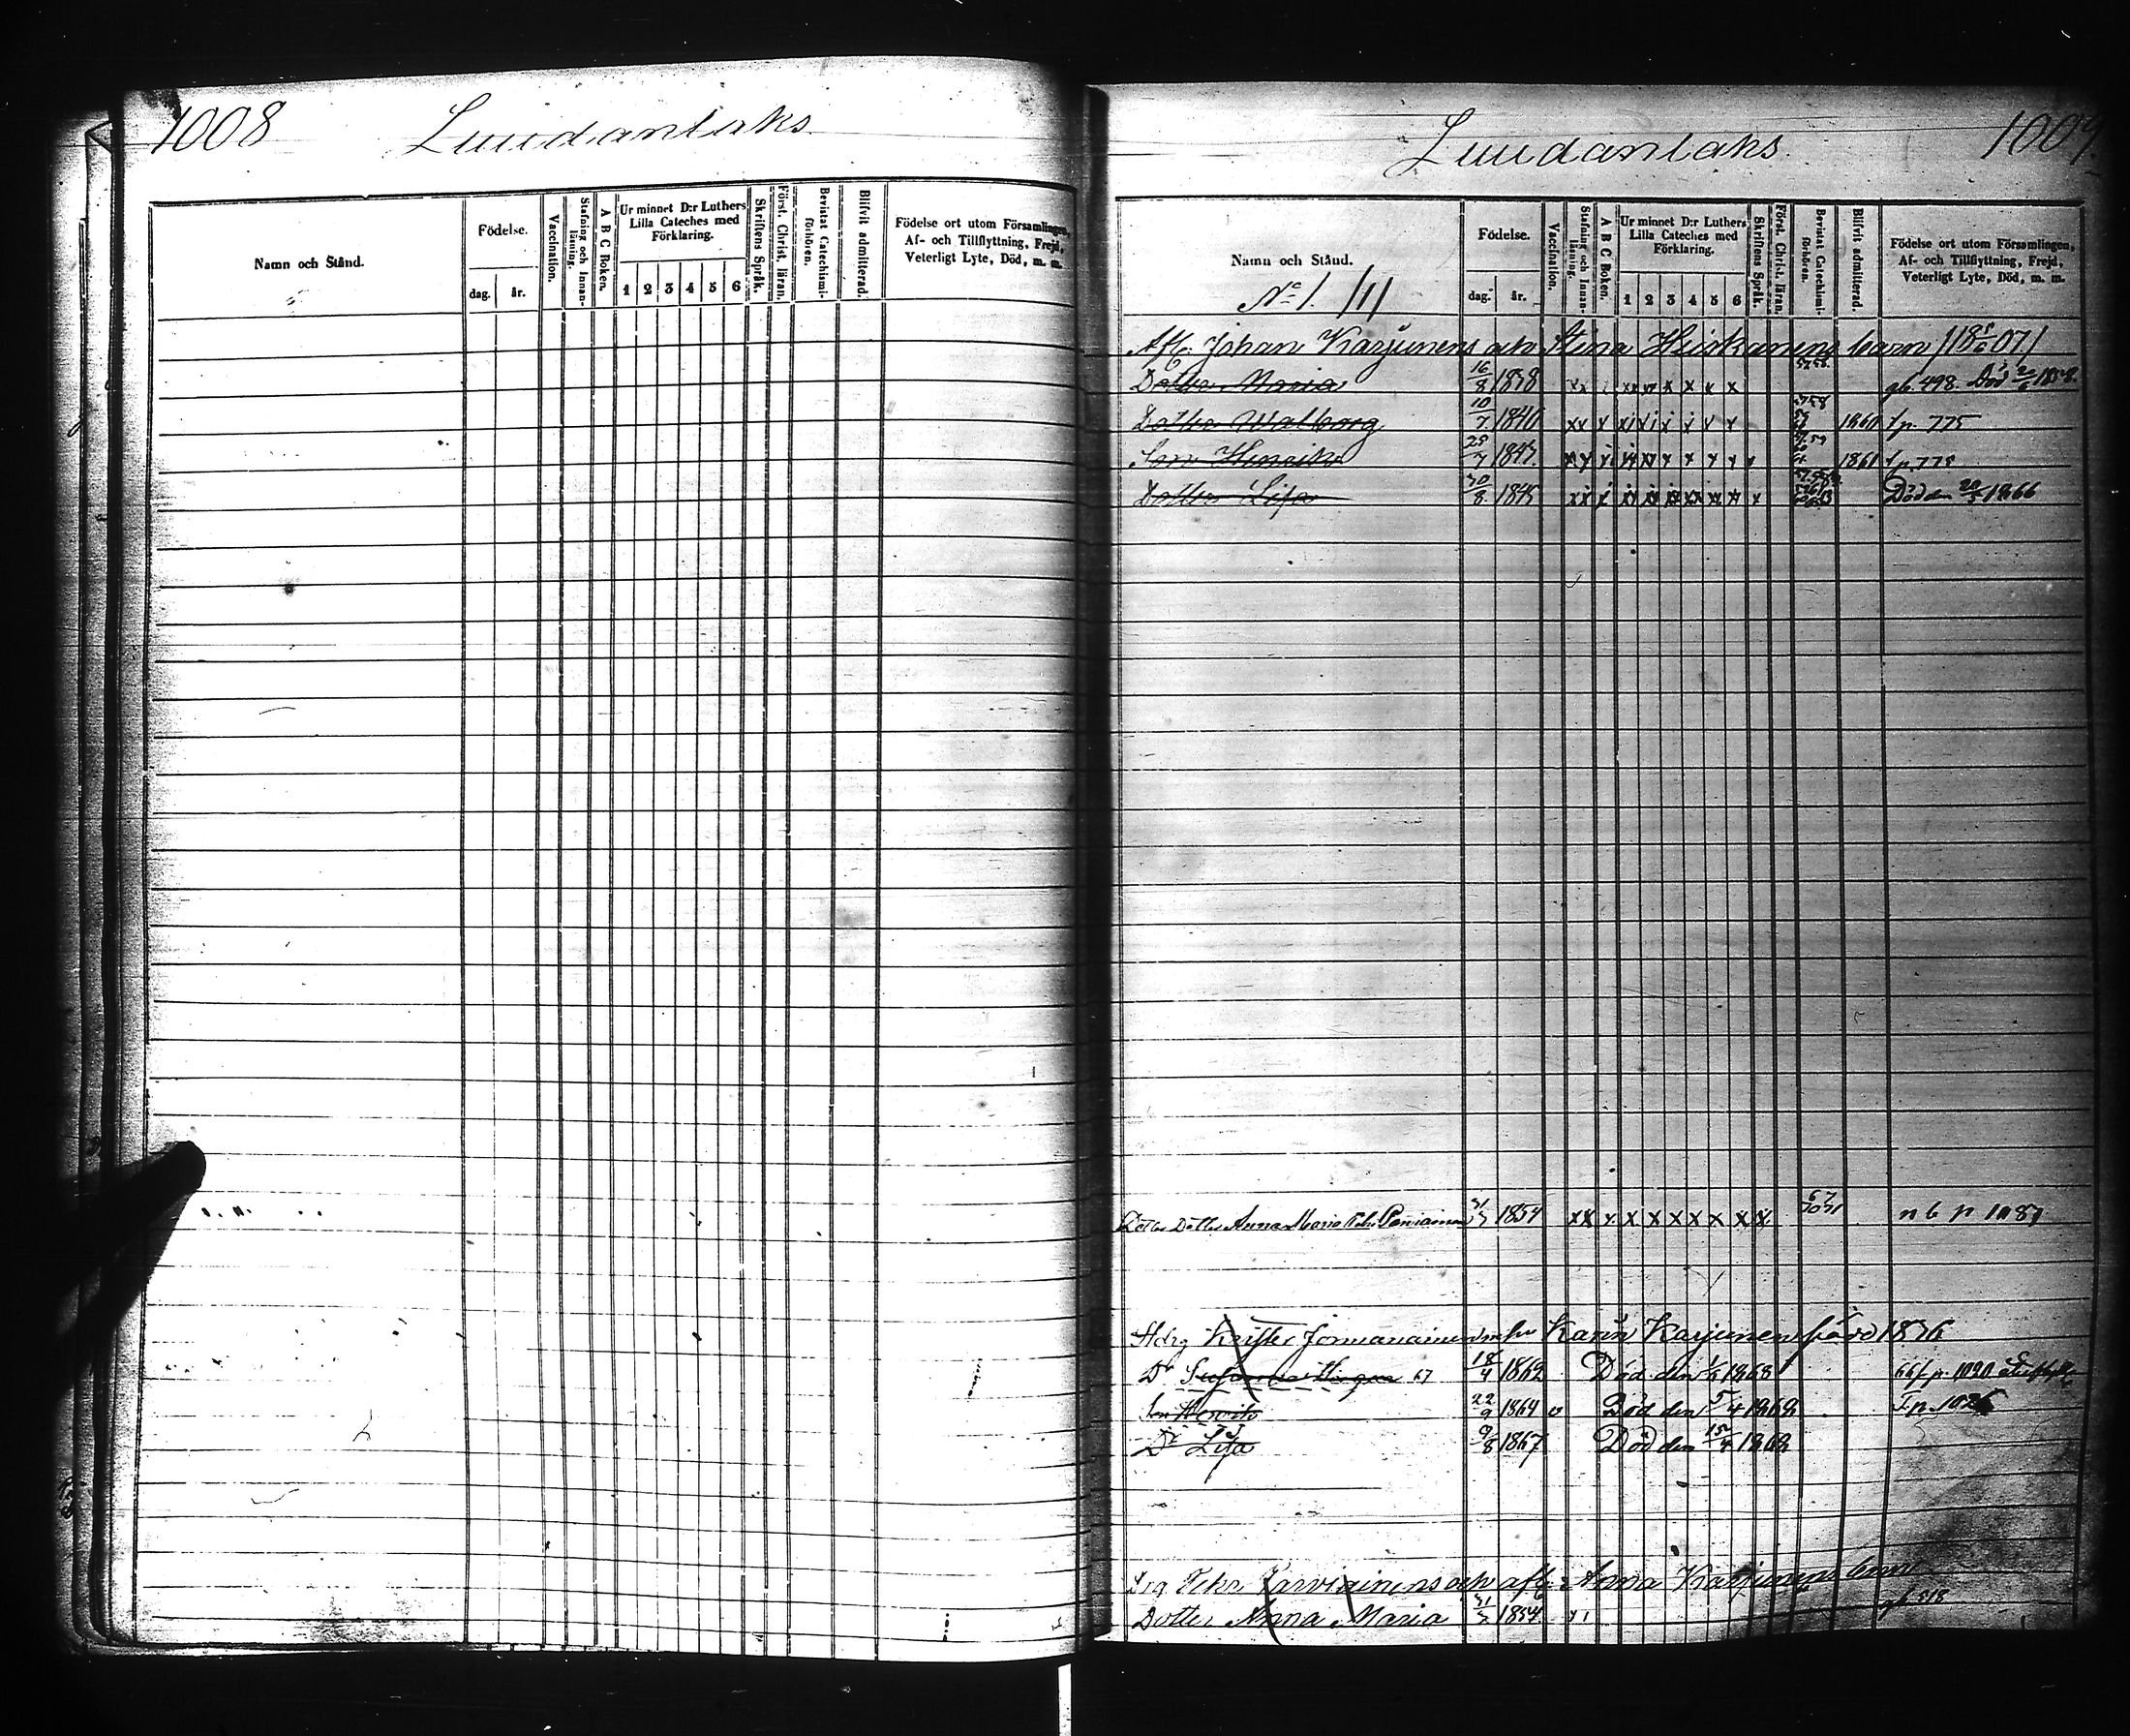 1008 Luudanlaks
Namn och Stånd.
Födelse.
dag. år.
Vaccination.
Stafning och Innanläsning.
A B C Boken.
Ur minnet D:r Luthers Lilla Cateches med Förklaring.
1 2 3 4 5 6
Skriftens Språk.
Först. Christ. läran.
Bevistat Catechismiförhören.
Blifvit admitterad.
Födelse ort utom Församlingen, Af- och Tillflyttning, Frejd, Veterligt Lyte, Död, m. m.
Luudanlaks. 1009
Namn och Stånd.
No 1. /1/
Födelse.
dag. år.
Vaccination.
Stafning och Innanläsning.
A B C Boken.
Ur minnet D:r Luthers Lilla Cateches med Förklaring.
1 2 3 4 5 6
Skriftens Språk.
Först. Christ. läran.
Bevistat Catechismiförhören.
Blifvit admitterad.
Födelse ort utom Församlingen, Af- och Tillflyttning, Frejd, Veterligt Lyte, Död, m. m.
Afl. Johan Karjunens och Stina Heiskanens barn
Dotter Maria 16/8 1838 498. Död 2/6 1858.
Dotter Walborg 10/7 1840 1860 f p. 775
Son Henrik 1843 1861 f p. 775
Dotter Lisa 30/8 1845 Död den 20/5 1866
Dotter Dotter Anna Maria 31/3 1854 x x x x x x x x x n b p 1087
Karin Karjunen
Dr 67 18/4 1862 Död den 1/6 1868
Son Henrik 22/9 1864 v Död den 5/4 1868
Dr Lisa 9/8 1867 Död den 15/4 1868
och afl. Anna Karjunens barn
Dotter Anna Maria 31/3 1854